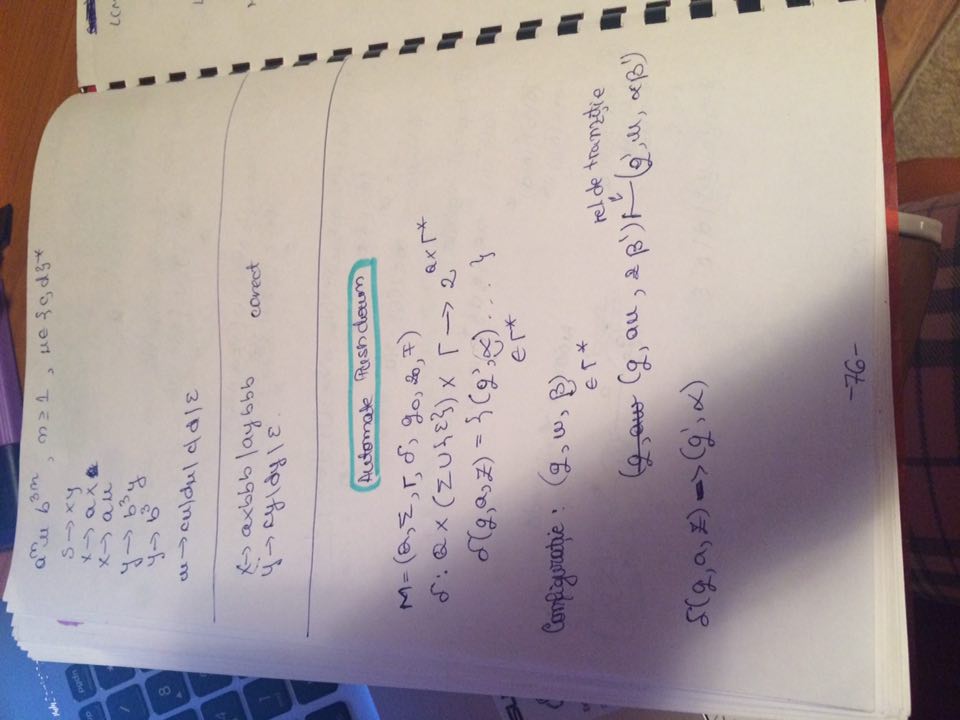 aⁿu b³ⁿ, n≥1, u∈{c,d}*
S → xy
x → ax
x → au
y → b³y
y → b³
u → cu|du|c|d|ε
x → axbbb|aybbb corect
y → cy|dy|ε.
Automate Push down
M = (Q, Σ, Γ, δ, q₀, z₀, F)
δ: Q x (Σ ∪ {ε}) x Γ → 2^(Q x Γ*)
δ(q, a, z) = {(q', α) ... }
∈ Γ*
Configurație: (q, w, β)
∈ Γ*
rel de tranziție
(q, aw (q, au, zβ') ⊢ (q', u, αβ')
δ(q, a, z) => (q', α)
-76-